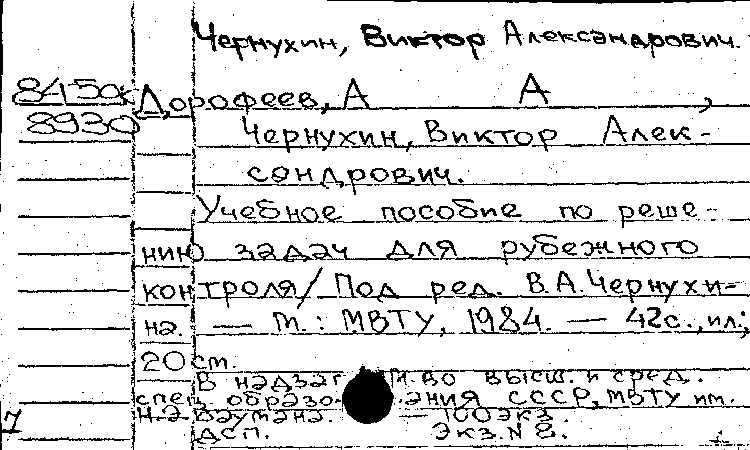 Чернухин, Виктор Александрович.
845дк Дорофеев, А А ,
8930 Чернухин, Виктор Алек-
сандрович.
Учебное пособие по реше-
нию задач для рубежного
контроля/ Под ред. В.А.Чернухи-
на. — М.: МВТУ, 1984. — 42с., ил.;
20см.
В надзаг М-во высш. и сред.
спец образо ания СССР, МВТУ им.
Н.Э.Баумана. — 100экз.
ДСП. Экз.N 8.